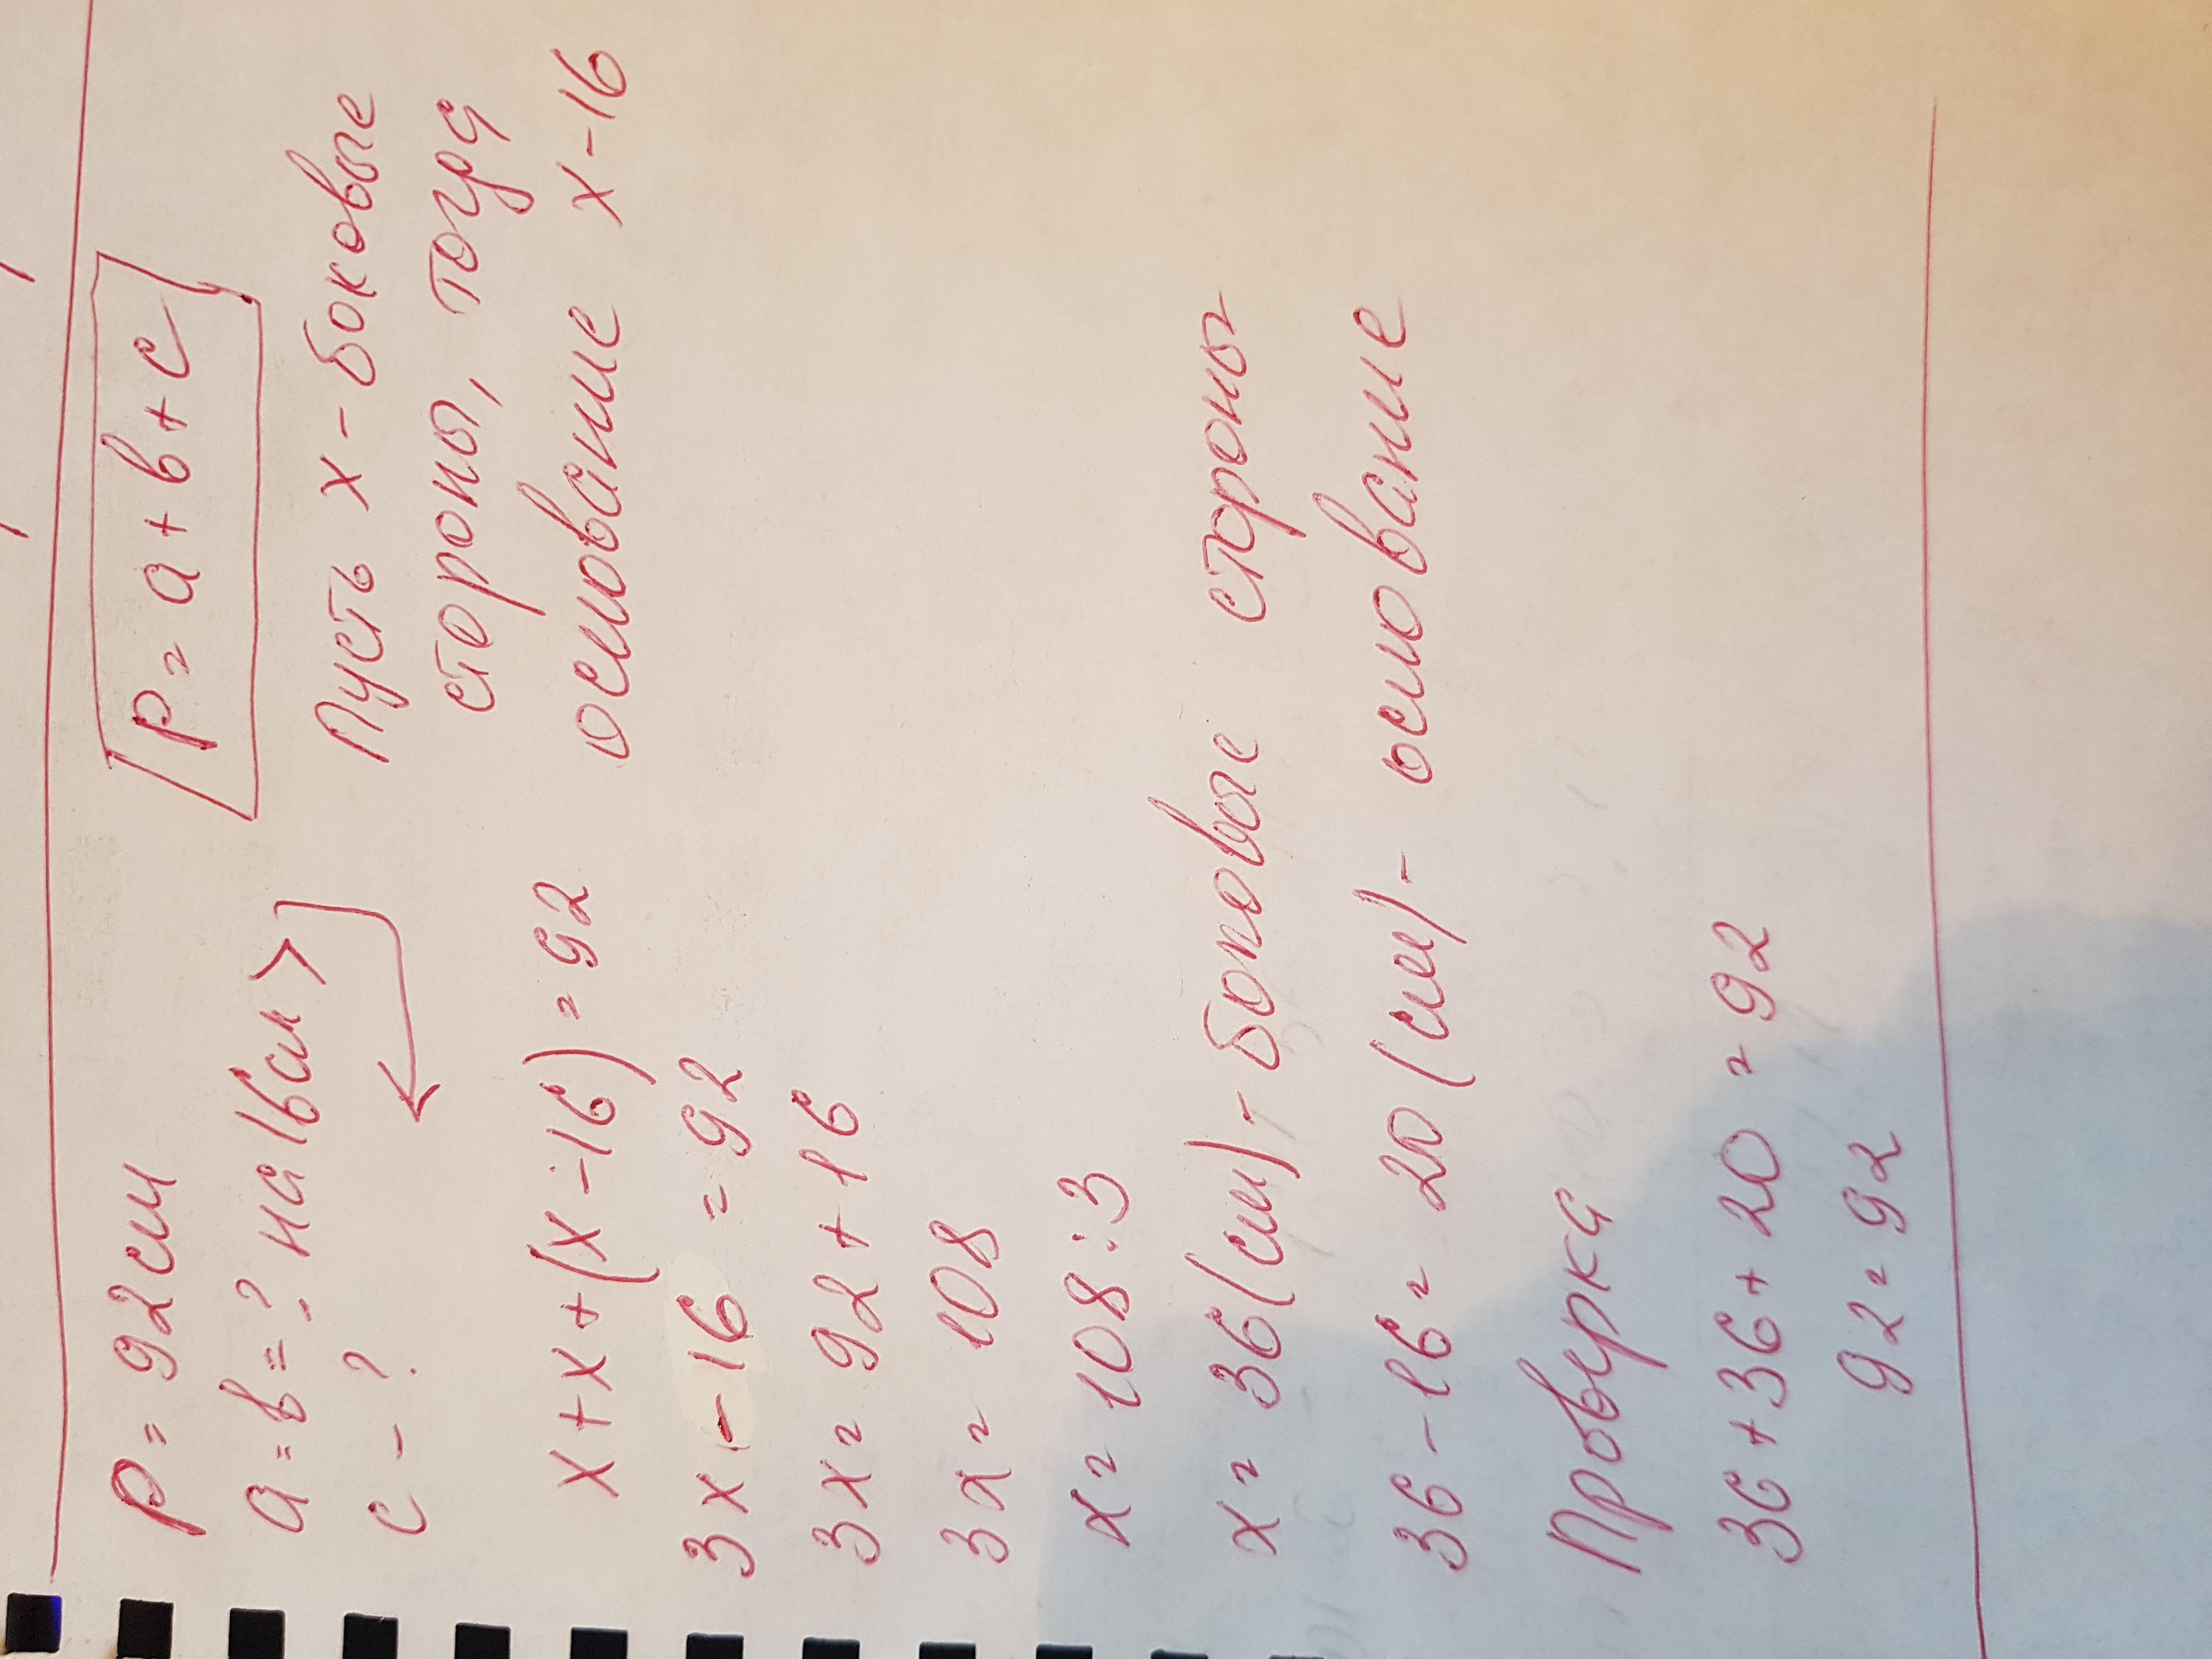 P = 92 см
P = a + в + c
a = в = ? на 16 см >
c - ?
Пусть х - боковые
стороны, тогда
основание х - 16
х + х + (х - 16) = 92
3х - 16 = 92
3х = 92 + 16
3х = 108
х = 108 : 3
х = 36 (см) - боковые стороны
36 - 16 = 20 (см) - основание
Проверка
36 + 36 + 20 = 92
92 = 92